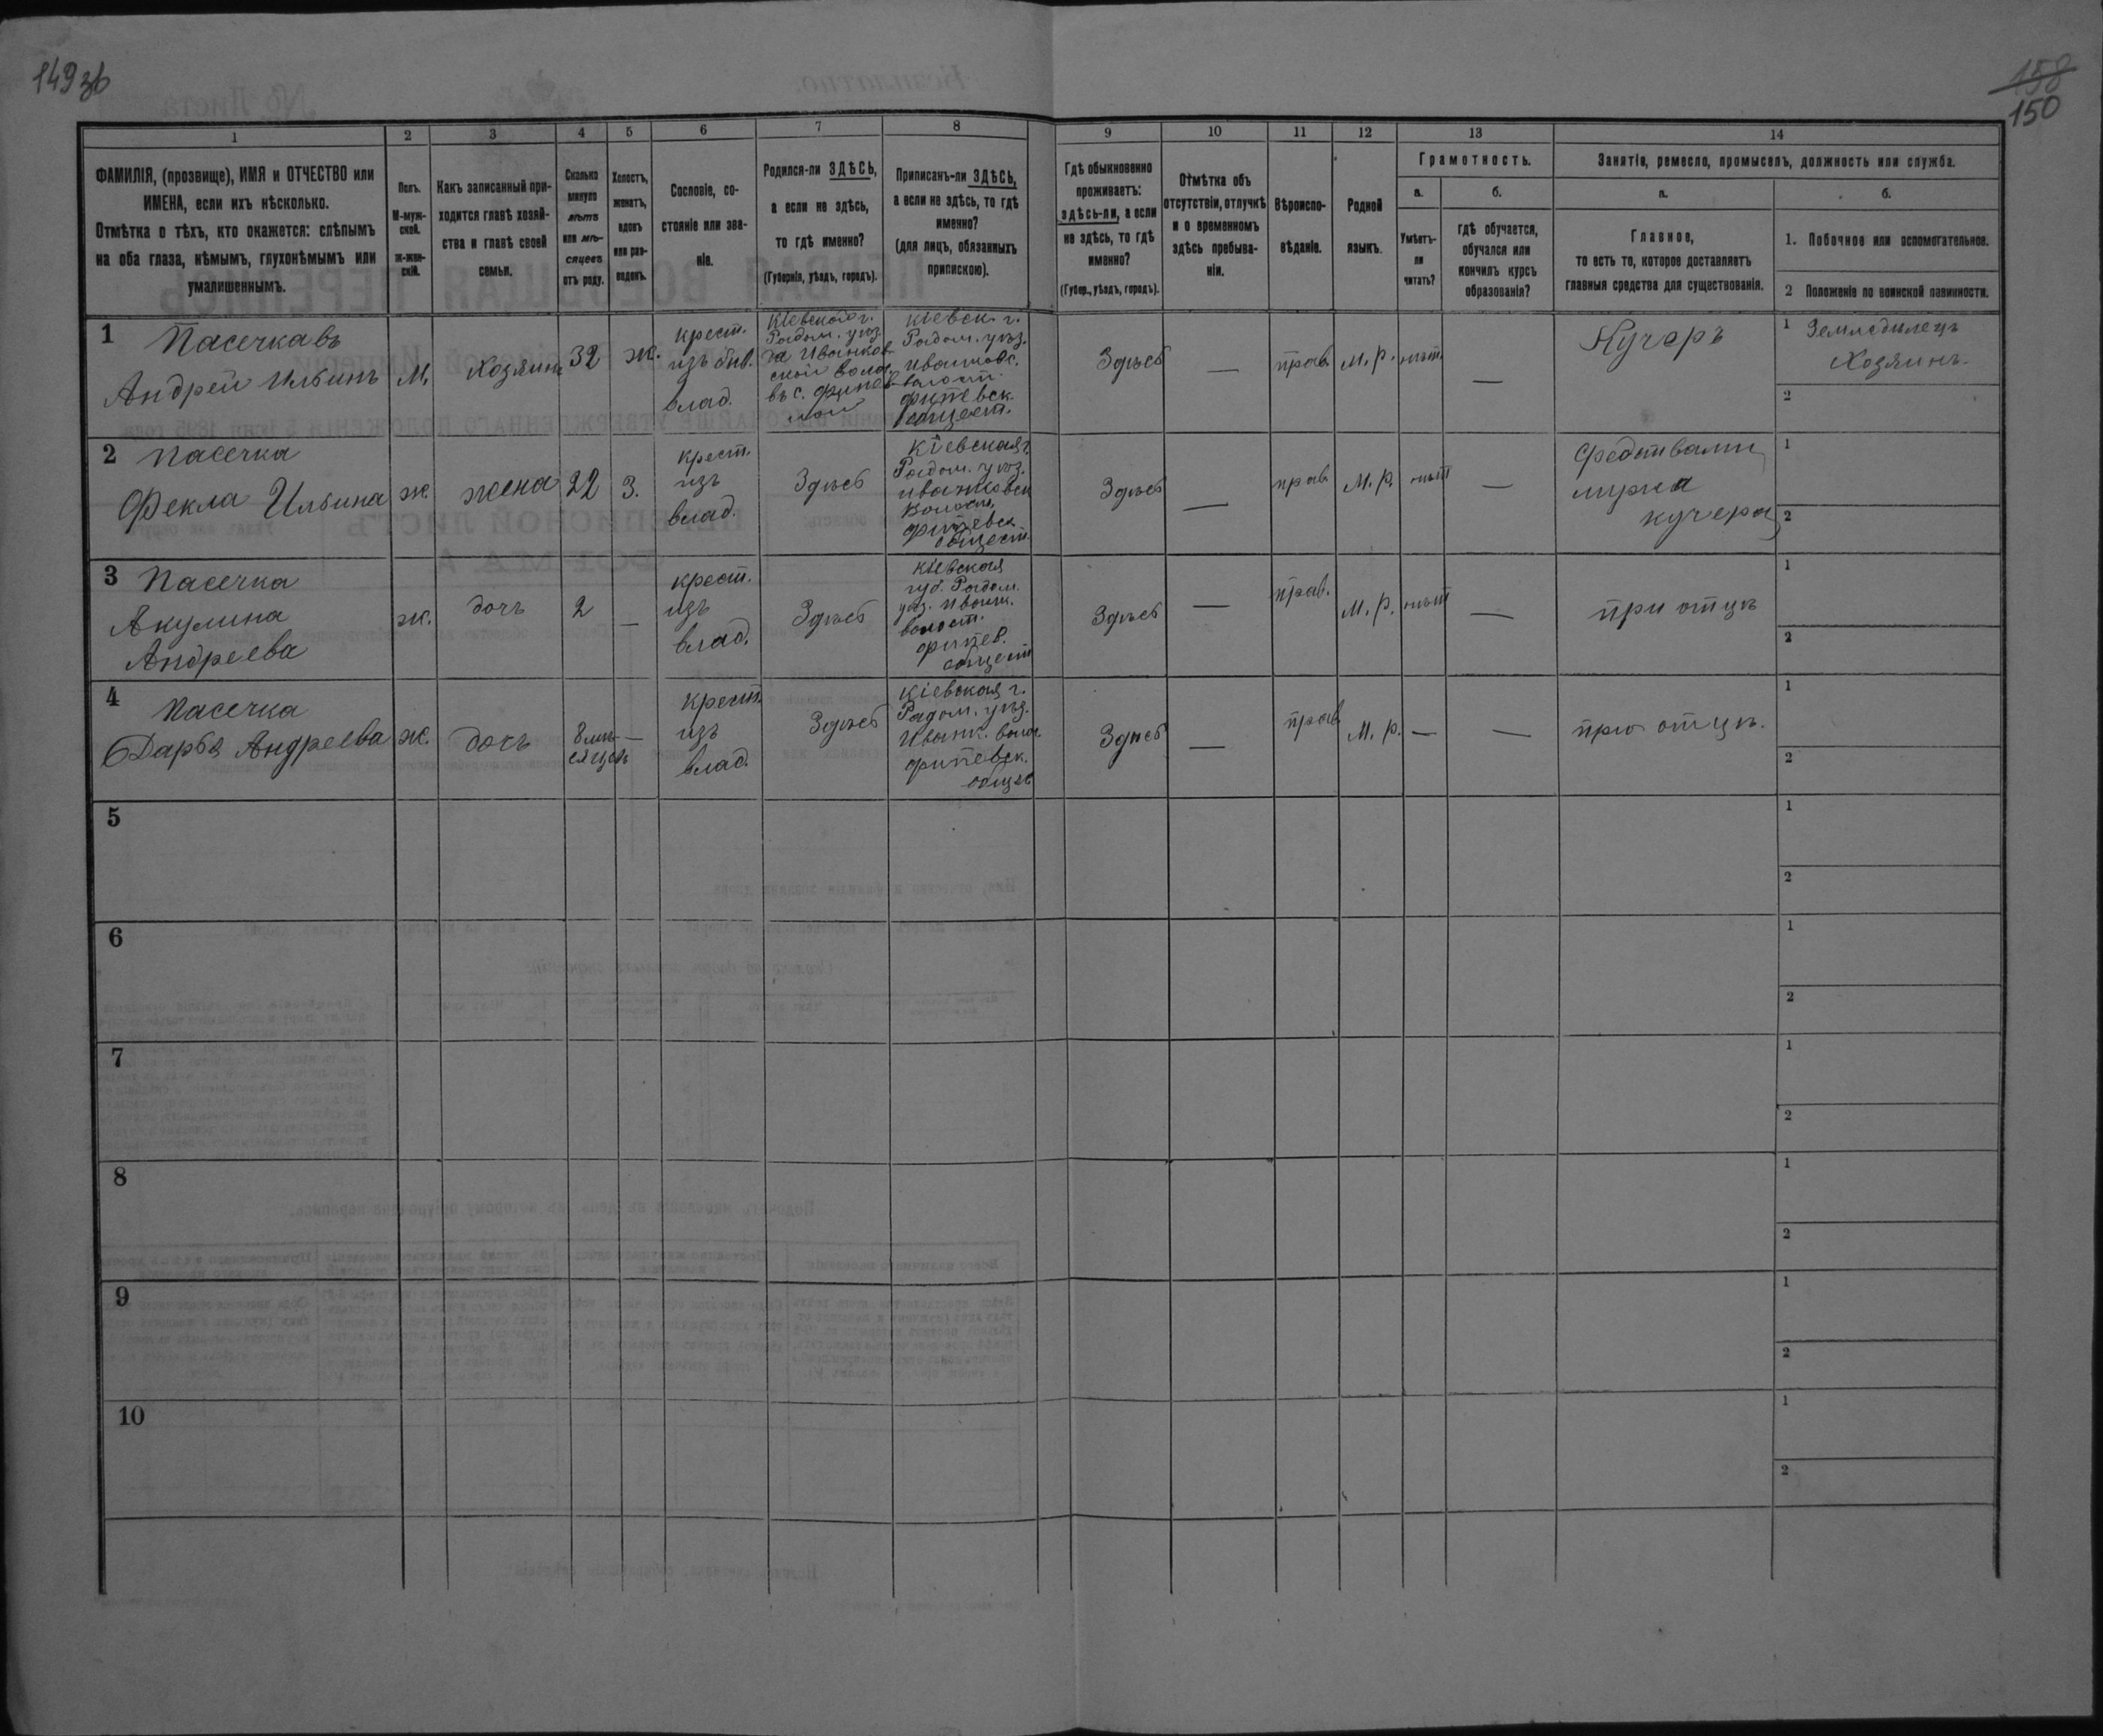 149 зв
158
150
1 2 3 4 5 6 7 8 9 10 11 12 13 14
ФАМИЛІЯ, (прозвище), ИМЯ и ОТЧЕСТВО или
ИМЕНА, если ихъ нѣсколько.
Отмѣтка о тѣхъ, кто окажется: слѣпымъ
на оба глаза, нѣмымъ, глухонѣмымъ или
умалишеннымъ.
Полъ.
М-муж-
ской.
Ж-жен-
скій.
Какъ записанный при-
ходится главѣ хозяй-
ства и главѣ своей
семьи.
Сколько
минуло
лѣтъ
или мѣ-
сяцевъ
отъ роду.
Холостъ,
женатъ,
вдовъ
или раз-
веденъ.
Сословіе, со-
стояніе или зва-
ніе.
Родился-ли ЗДѢСЬ,
а если не здѣсь,
то гдѣ именно?
(Губернія, уѣздъ, городъ).
Приписанъ-ли ЗДѢСЬ,
а если не здѣсь, то гдѣ
именно?
(для лицъ, обязанныхъ
припискою).
Гдѣ обыкновенно
проживаетъ:
здѣсь-ли, а если
не здѣсь, то гдѣ
именно?
(Губер., уѣздъ, городъ).
Отмѣтка объ
отсутствіи, отлучкѣ
и о временномъ
здѣсь пребыва-
ніи.
Вѣроиспо-
вѣданіе.
Родной
языкъ.
Грамотность.
а.
Умѣетъ-
ли
читать?
б.
гдѣ обучается,
обучался или
кончилъ курсъ
образованія?
Занятіе, ремесло, промыселъ, должность или служба.
а.
Главное,
то есть то, которое доставляетъ
главныя средства для существованія.
б.
1. Побочное или вспомогательное.
2 Положеніе по воинской повинности.
1
Пасечкавъ
Андрей Ильинъ
М.
Хозяинъ
32
ж.
крест.
изъ быв.
влад.
Радом. уѣз.
Кіевск. г.
Радом. уѣз.
общест.
Здѣсь
—
прав.
М. р.
нѣт
—
Кучеръ
1 Земледилецъ
Хозяинъ.
2
2
Пасечка
Фекла Ильина
ж.
жена
22
З.
крест.
изъ
влад.
Здѣсь
Кіевская г.
Радом. уѣз.
общест.
Здѣсь
—
прав.
М. р.
нѣт
—
мужа
кучера
1
2
3
Пасечка
Акулина
Андреева
ж.
дочь
2
—
крест.
изъ
влад.
Здѣсь
Кіевская
губ. Радом.
уѣз. Иванк.
волост.
общест
Здѣсь
—
прав.
М. р.
нѣт
—
при отцѣ
1
2
4
Пасечка
Дарья Андреева
ж.
дочь
8 мѣ-
сяцевъ
—
крест.
изъ
влад.
Здѣсь
Кіевская г.
Радом. уѣз.
Иванк. волос.
общес.
Здѣсь
—
прав
М. р.
—
—
при отцѣ.
1
2
5
1
2
6
1
2
7
1
2
8
1
2
9
1
2
10
1
2